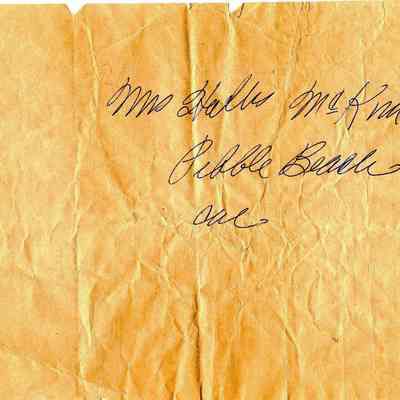 Mrs Hallis McKn
Pebble Beach
Cal